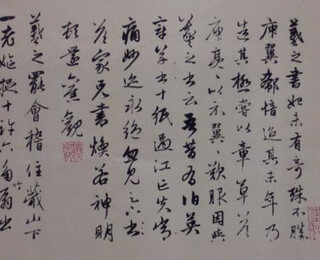 羲之書始未有奇殊不勝
庾翼郗愔迨其末年乃
造其極嘗以章草答
庾亮亮以示翼翼歎服因與
羲之書云吾昔有伯英
章草十紙過江亡失常
痛妙迹永絶忽見足下
答家兄書煥若神明
頓還舊觀
羲之罷會稽住蕺山下
一老嫗捉十許六角竹扇出